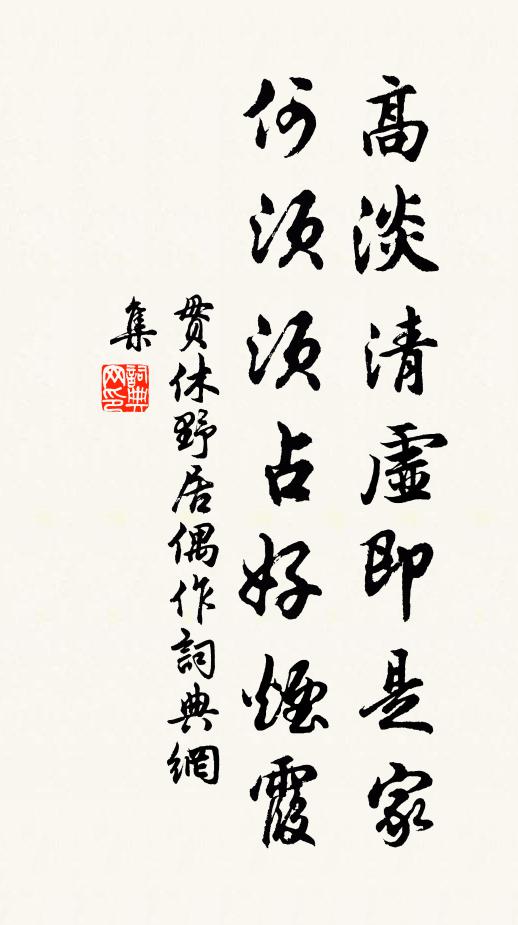 高淡清虛即是家
何須須占好煙霞
貫休野居偶作詞典網
集
詞典
网印